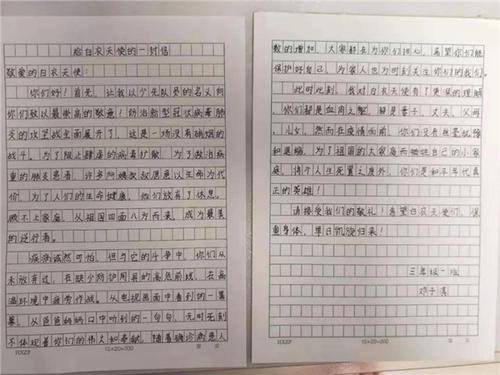 给白衣天使的一封信
敬爱的白衣天使:
你们好!首先,让我以个少先队员的名义向
你们致以最崇高的敬意!防治新型冠状病毒肺
炎的攻坚战全面展开了,这是一场没有硝烟的
战斗。为了阻止肆虐的病毒扩散,为了救治病
重的肺炎患者,许多阿姨叔叔愿意以生命为代
价,为了人们的生命健康,他们放弃了休息,
顾不上家庭,从祖国四面八方而来,成为最美
的逆行者。
疾病诚然可怕,但与它的斗争中,你们从
未放弃过,在缺少防护用具的高危前线,在病
毒环境中疲劳作战。从电视画面中看到的一幕
幕,从爸爸妈妈口中听到的一句句,无时无刻
不体现着你们的伟大和奉献,随着确诊病患人
数的增加,大家都在为你们担心,希望你们能
保护好自己,为家人也为时刻关注你们的我们。
此时此刻,我对白衣天使有了更深的理解,
你们都是血肉之躯,都是妻子、丈夫、父母
、儿女,然而在疫情面前,你们没有丝毫犹豫
和退缩,为了祖国的大家庭而牺牲自己的小家
庭,将个人生死置之度外,你们是和平年代真
正的英雄!
请接受我们的敬礼!希望白衣天使们,保
重身体,早日凯旋归来!
三年级一班
邓子淇
HXZP 15×20=300
HXZP 15×20=300